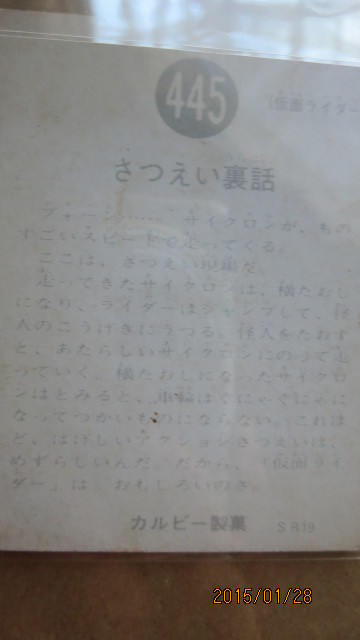 445
仮面ライダ
さつえい裏話
ブォーン……　サイクロンが、もの
すごいスピードで走ってくる。
ここは、さつえい現場だ。
走ってきたサイクロンは、横たおし
になり、ライダーはジャンプして、怪
人のこうげきにうつる。怪人をたおす
と、あたらしいサイクロンにのって走
っていく。横たおしになったサイクロ
ンはとみると、車輪はぐにゃぐにゃに
なってつかいものにならない。これほ
ど、はげしいアクションさつえいは、
めずらしいんだ。だから、「仮面ライ
ダー」は　おもしろいのさ。
カルビー製菓
SR19
2015/01/28